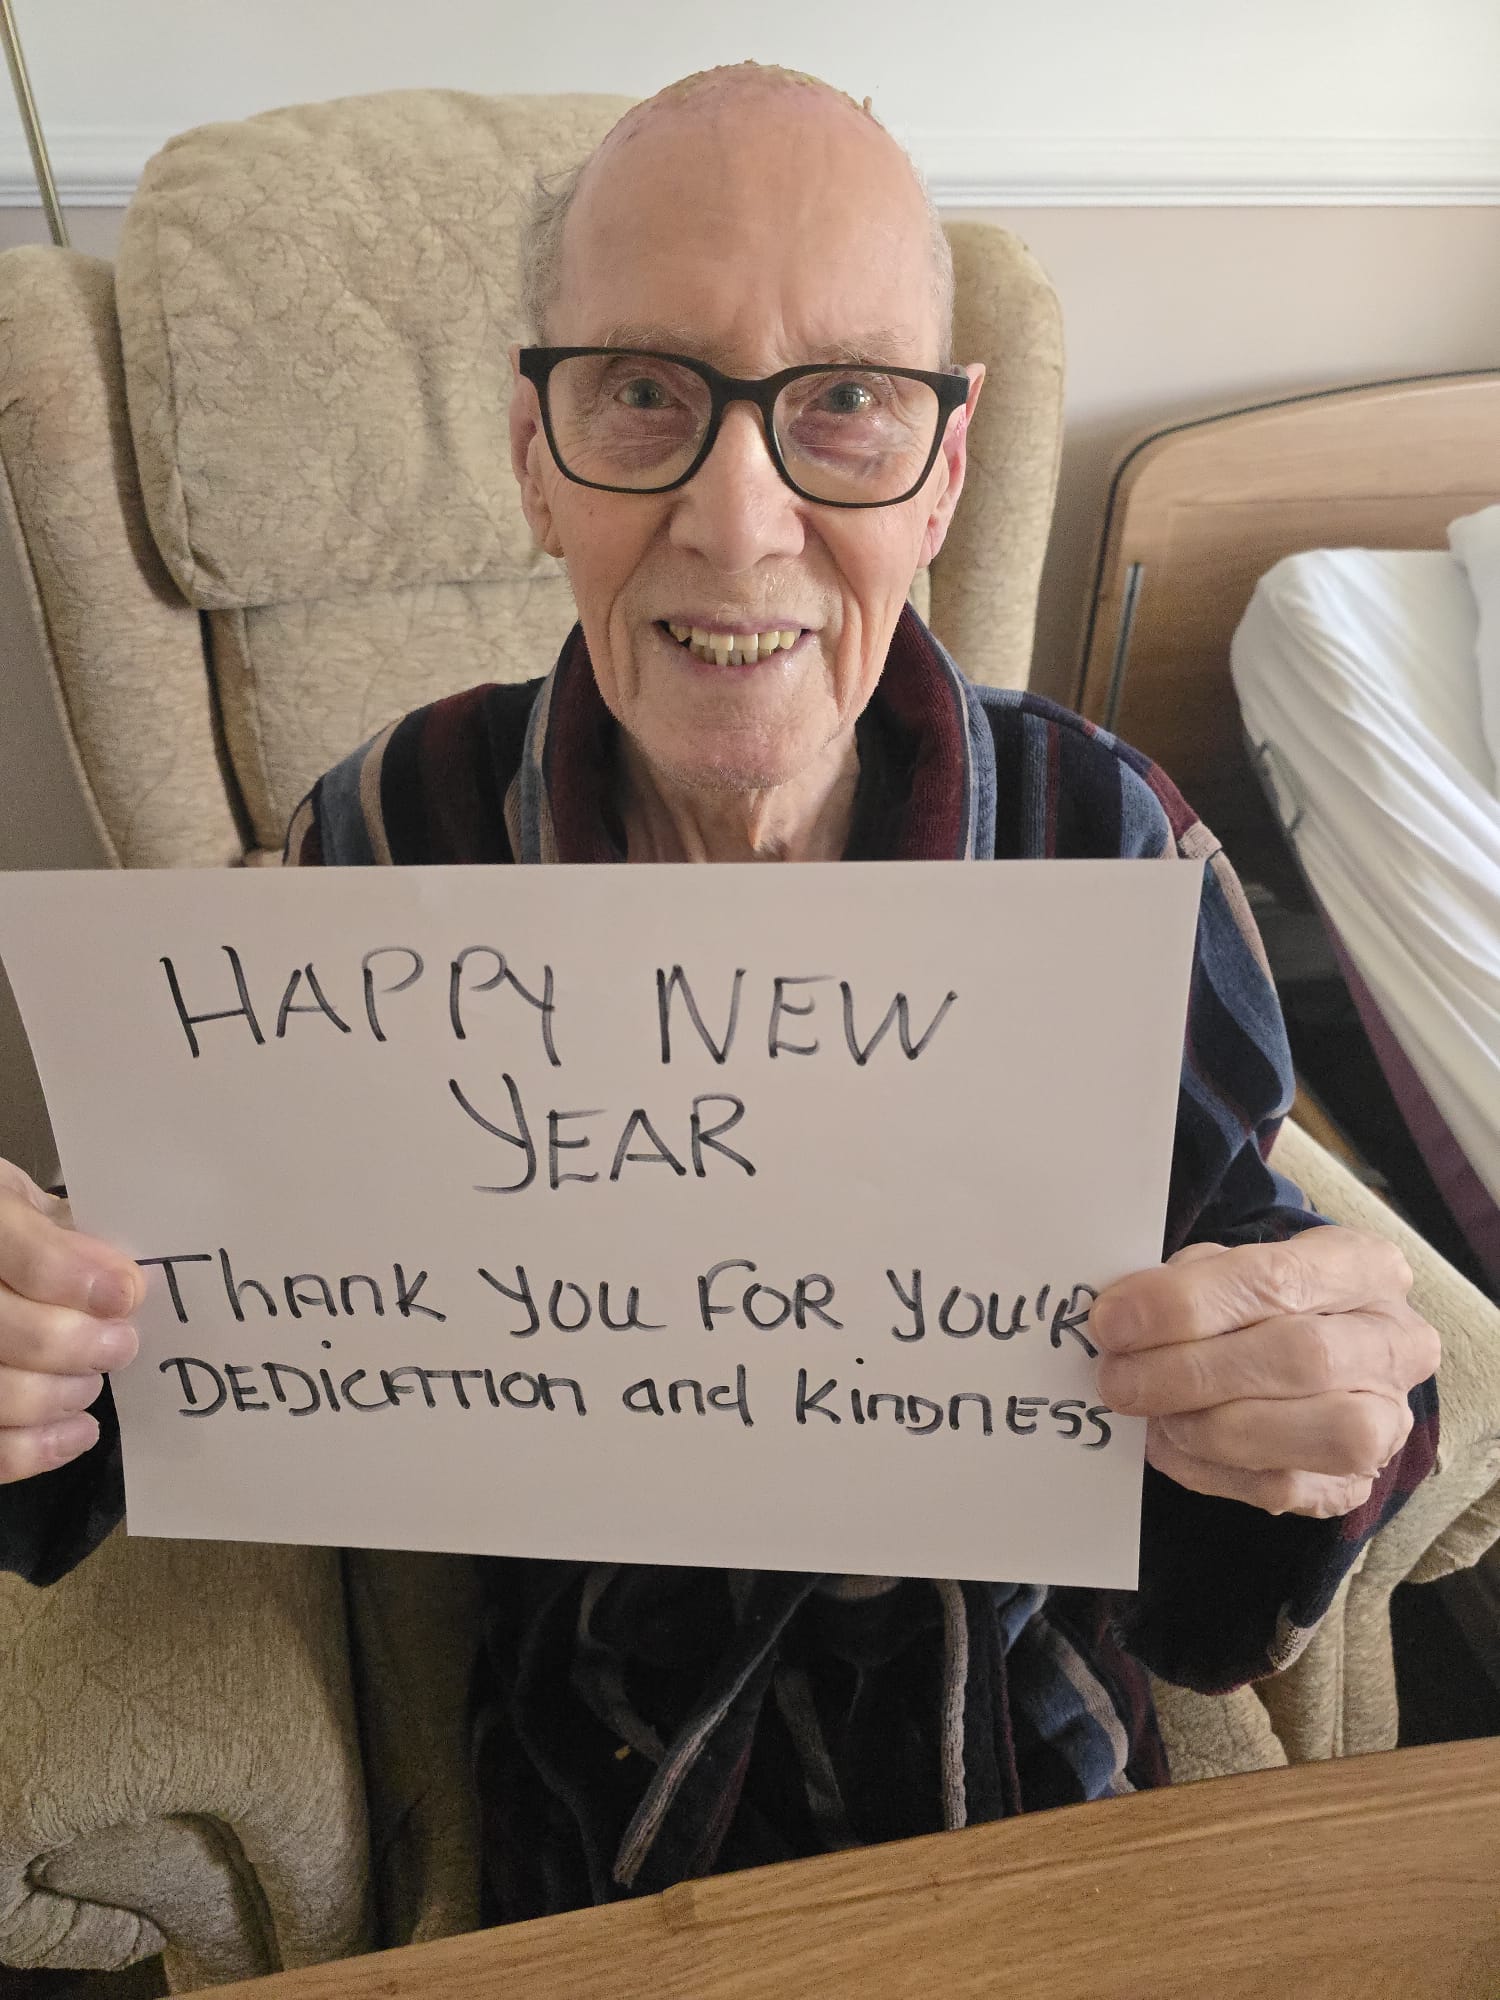 HAPPY NEW
YEAR
Thank you FOR you'R
DEDICATION and KINDNESS